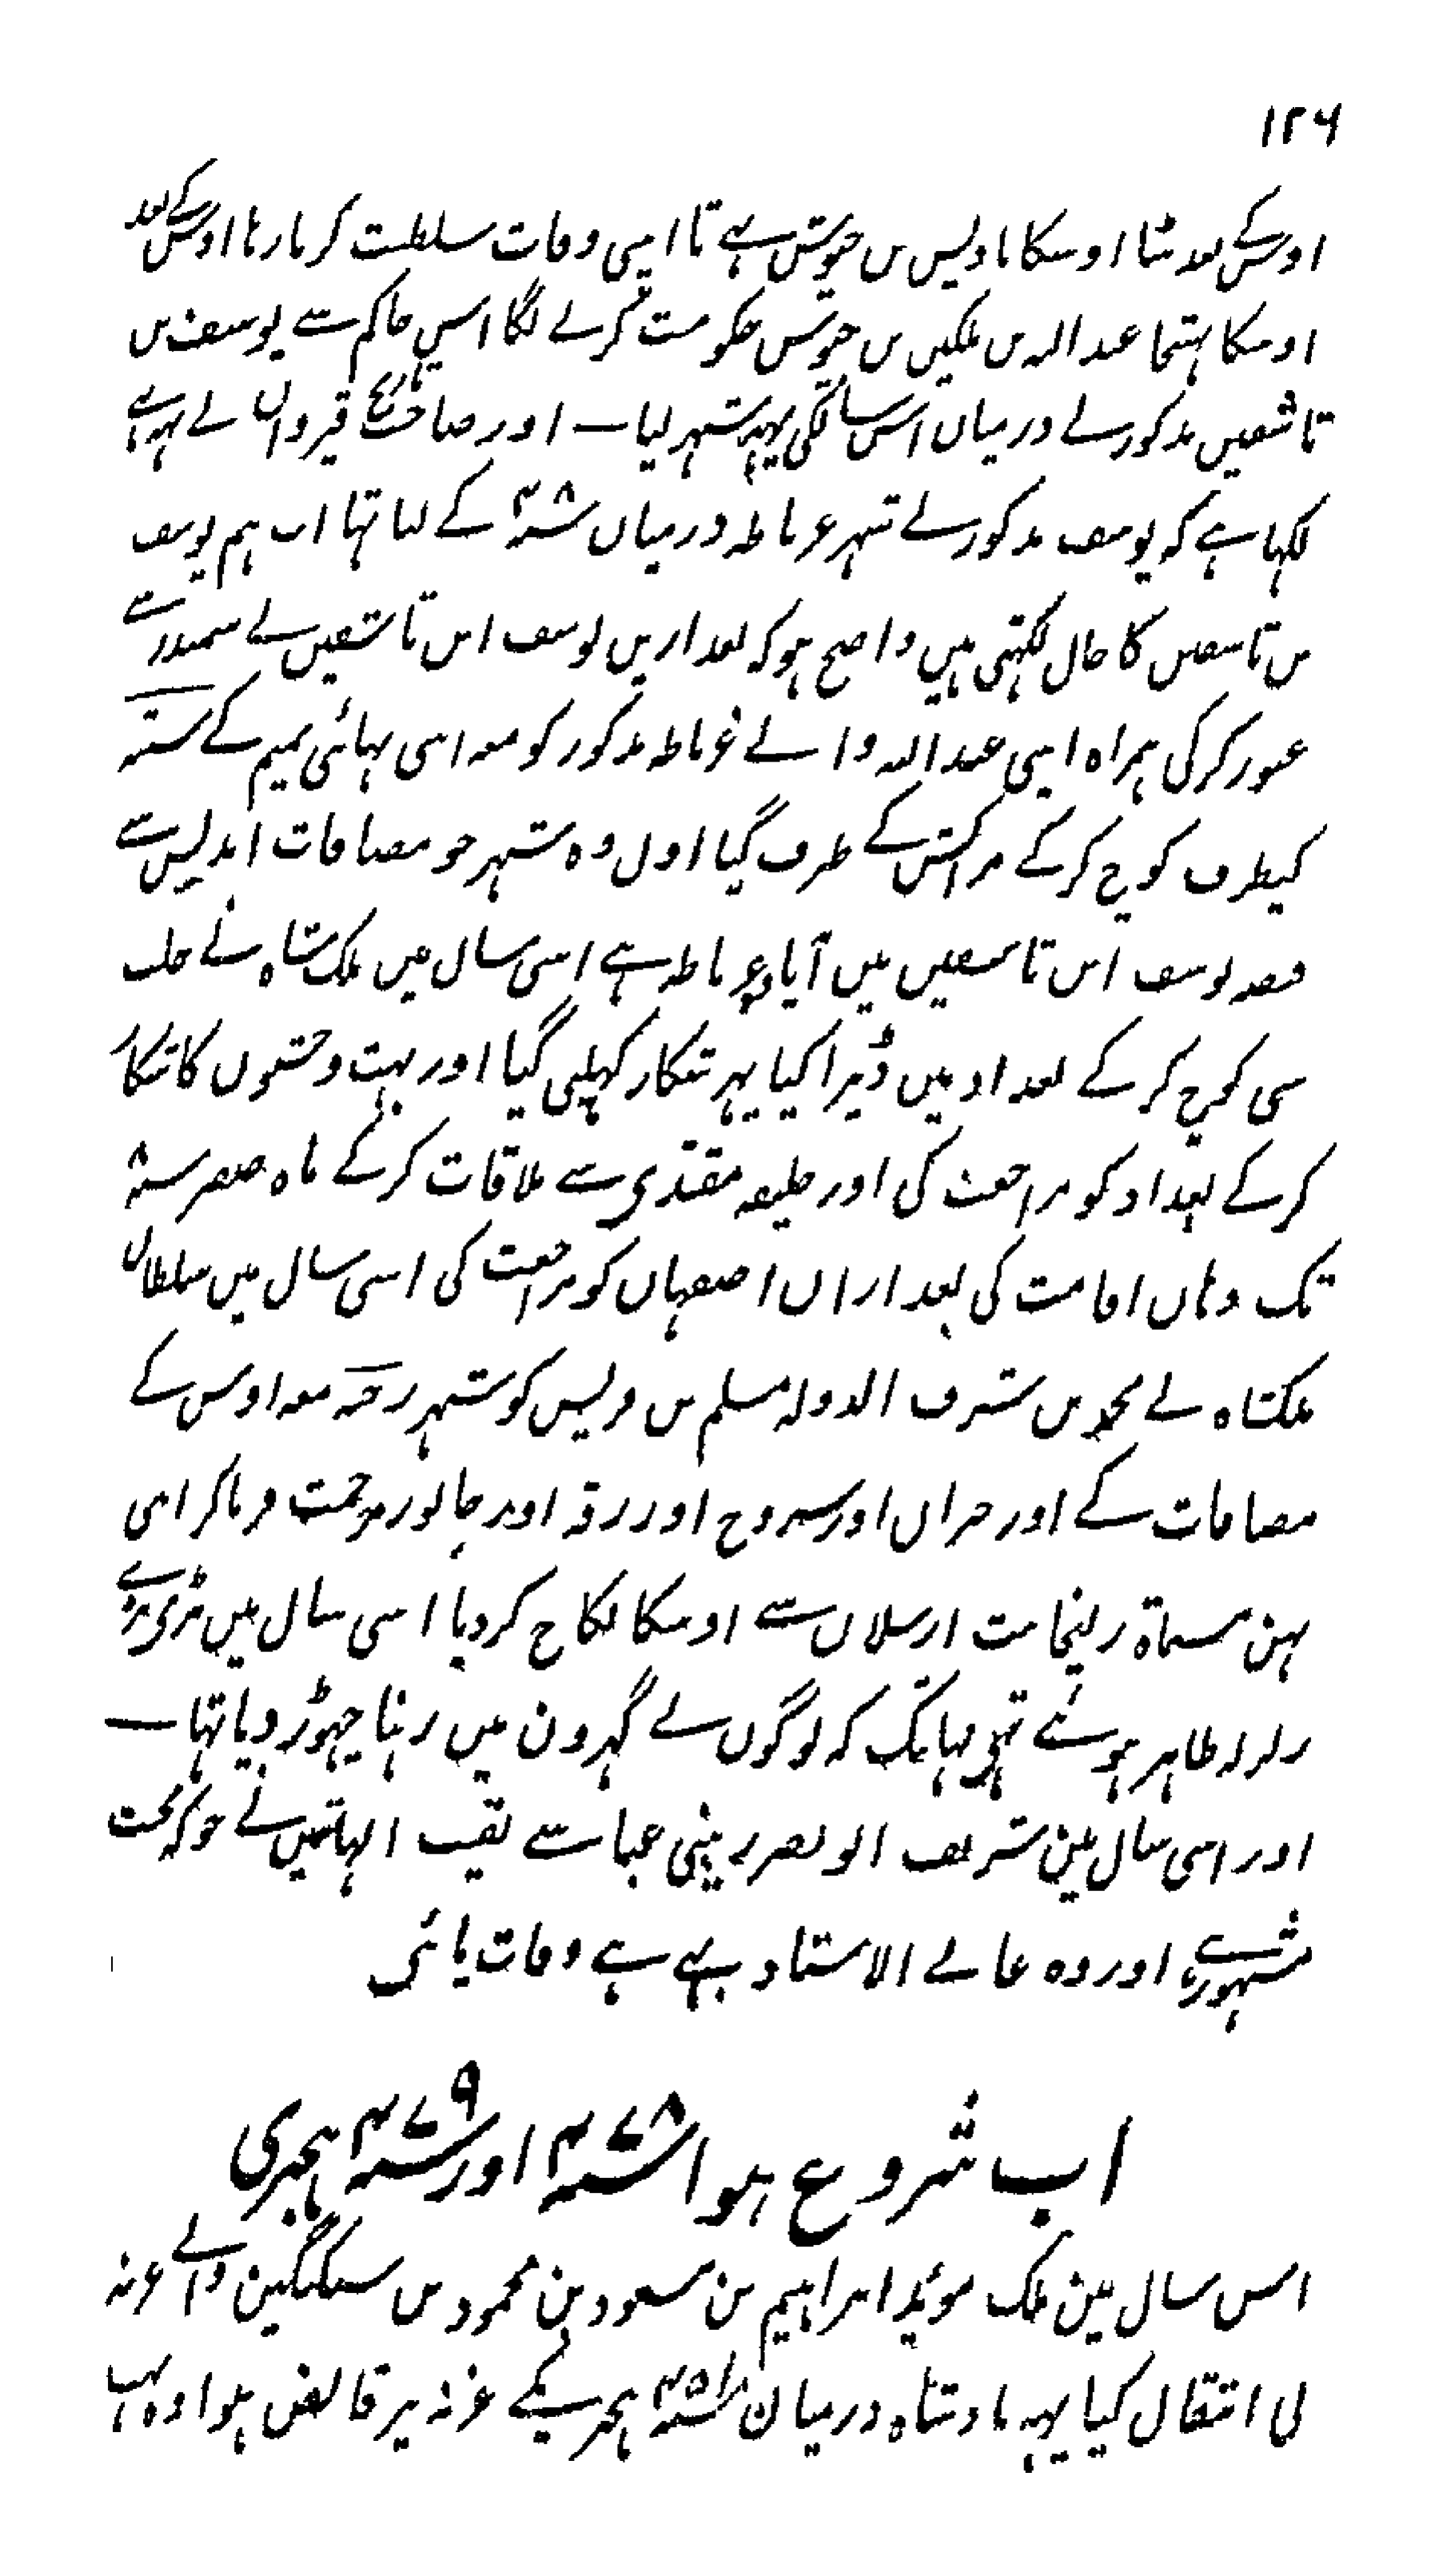 ۱۲۶
اوسکے بعد بیٹا اوسکا بادیس بن حبوس ہے تا اپنی وفات سلطنت کرتا رہا اوسکے بعد
اوسکا بہتیجا عبد اللہ بن بلکین بن حبوس حکومت کرنے لگا اسی حاکم سے یوسف بن
تاشفین مذکور نے درمیان اس سال کی یہہ شہر لیا — اور صاحب تاریخ قیروان نے یہہ
لکہا ہے کہ یوسف مذکور نے شہر غرناطہ درمیان کے لیا تہا اب ہم یوسف
بن تاشفین کا حال لکہتی ہیں واضح ہو کہ بعد ازین یوسف ابن تاشفین نے سمندر سے
عبور کرکی ہمراہ اپنی عبد اللہ والے غرناطہ مذکور کو معہ اسی بہائی تمیم کے سبتہ
کیطرف کوچ کرکے مراکش کے طرف گیا اول وہ شہر جو مضافات اندلس سے
قبضہ یوسف ابن تاشفین میں آیا وہ غرناطہ ہے اسی سال میں ملک شاہ نے حلب
سی کوچ کرکے بغداد میں ڈیرا کیا پہر شکار کہیلنی گیا اور بہت وحشیوں کا شکار
کرکے بغداد کو مراجعت کی اور خلیفہ مقتدی سے ملاقات کرکے ماہ صفر
تک وہاں اقامت کی بعد ازاں اصفہاں کو مراجعت کی اسی سال میں سلطان
ملکشاہ نے محمد بن شرف الدولہ مسلم بن قریش کو شہر رحبہ معہ اوس کے
مضافات کے اور حران اور سروج اور رقہ اور خابور مرحمت فرماکر اپنی
بہن مسماۃ زلیخا بنت ارسلان سے اوسکا نکاح کردیا اسی سال میں بڑی بڑے
زلزلہ ظاہر ہوئے تہی یہانتک کہ لوگوں نے گہرون میں رہنا چہوڑ دیا تہا —
اور اسی سال مین شریف ابو نصر زینبی عباسے نقیب الہاشمین نے جو کہ محدث
مشہور ہے اور وہ عالے الاسناد بہے ہے وفات پائی
اب شروع ہوا سنہ ۴۷۸ اور سنہ ۴۷۹ ہجری
اس سال مین ملک موید ابراہیم بن مسعود بن محمود بن سبکتگین والے غزنہ
نی انتقال کیا یہہ بادشاہ درمیان سنہ ۴۵۱ ہجریکے غزنہ پر قابض ہوا وہ بہت